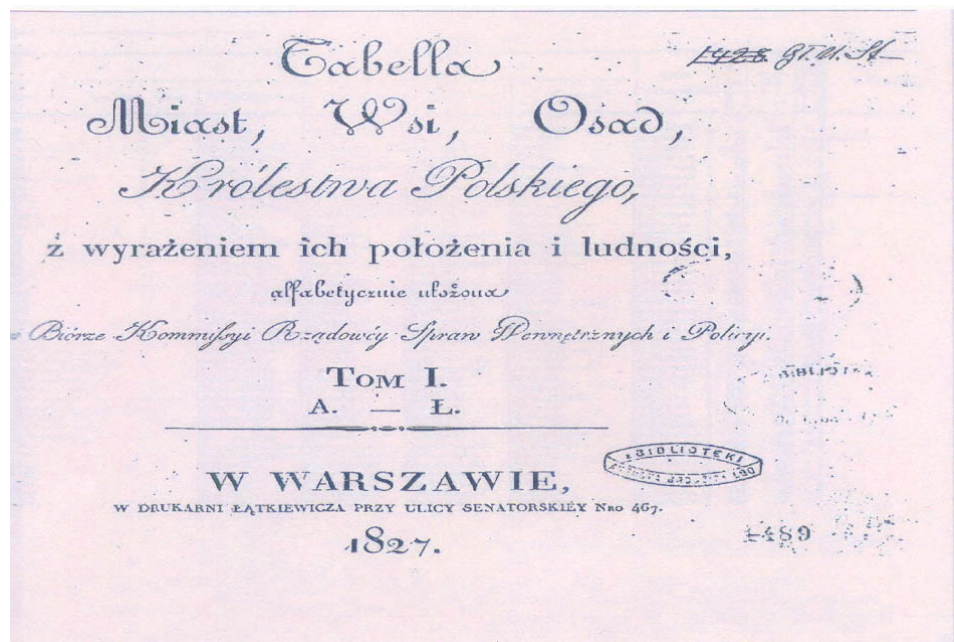 Tabella
1428 GT.U.St
Miast, Wsi, Osad,
Królestwa Polskiego,
z wyrażeniem ich położenia i ludności,
alfabetycznie ułożona
w Biórze Kommissyi Rządowéy Spraw Wewnętrznych i Policyi.
TOM I.
A. — Ł.
W WARSZAWIE,
W DRUKARNI ŁĄTKIEWICZA PRZY ULICY SENATORSKIÉY NRO 467.
BIBLIOTEKI
1827.
1489